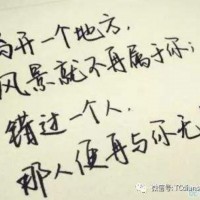 离开一个地方,
风景就不再属于你;
错过一个人,
那人便再与你无
微信号: